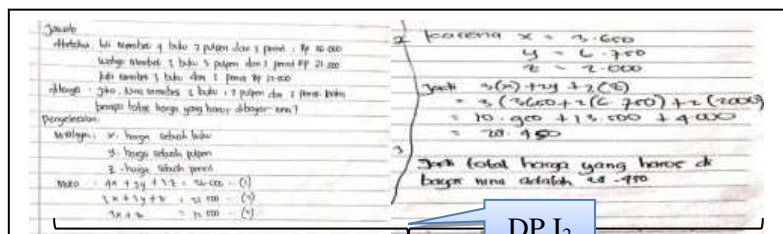 Jawab
diketahui : Lili membeli 4 buku 2 pulpen dan 3 pensil : Rp 26.000
Wahyu membeli 3 buku 3 pulpen dan 1 pensil Rp 21.500
Juli membeli 3 buku dan 1 pensil Rp
ditanya : jika Nina membeli 3 buku, 2 pulpen dan 2 pensil. Maka
berapa total harga yang harus dibayar nina?
Penyelesaian
Misalnya : x. harga sebuah buku
y. harga sebuah pulpen
z. harga sebuah pensil
Maka : 4x + 2y + 3z = 26.000 - (1)
3x + 3y + z = 21.500 - (2)
3x + z = - (3)
2 karena x = 3.650
y = 6.750
z = 2.000
Jadi 3(x) + 2y + 2(z)
= 3 (3650 + 2(6.750) + 2 (2000)
= 10.950 + 13.500 + 4.000
= 28.450
3
Jadi total harga yang harus di
bayar nina adalah 28.450
DP I2